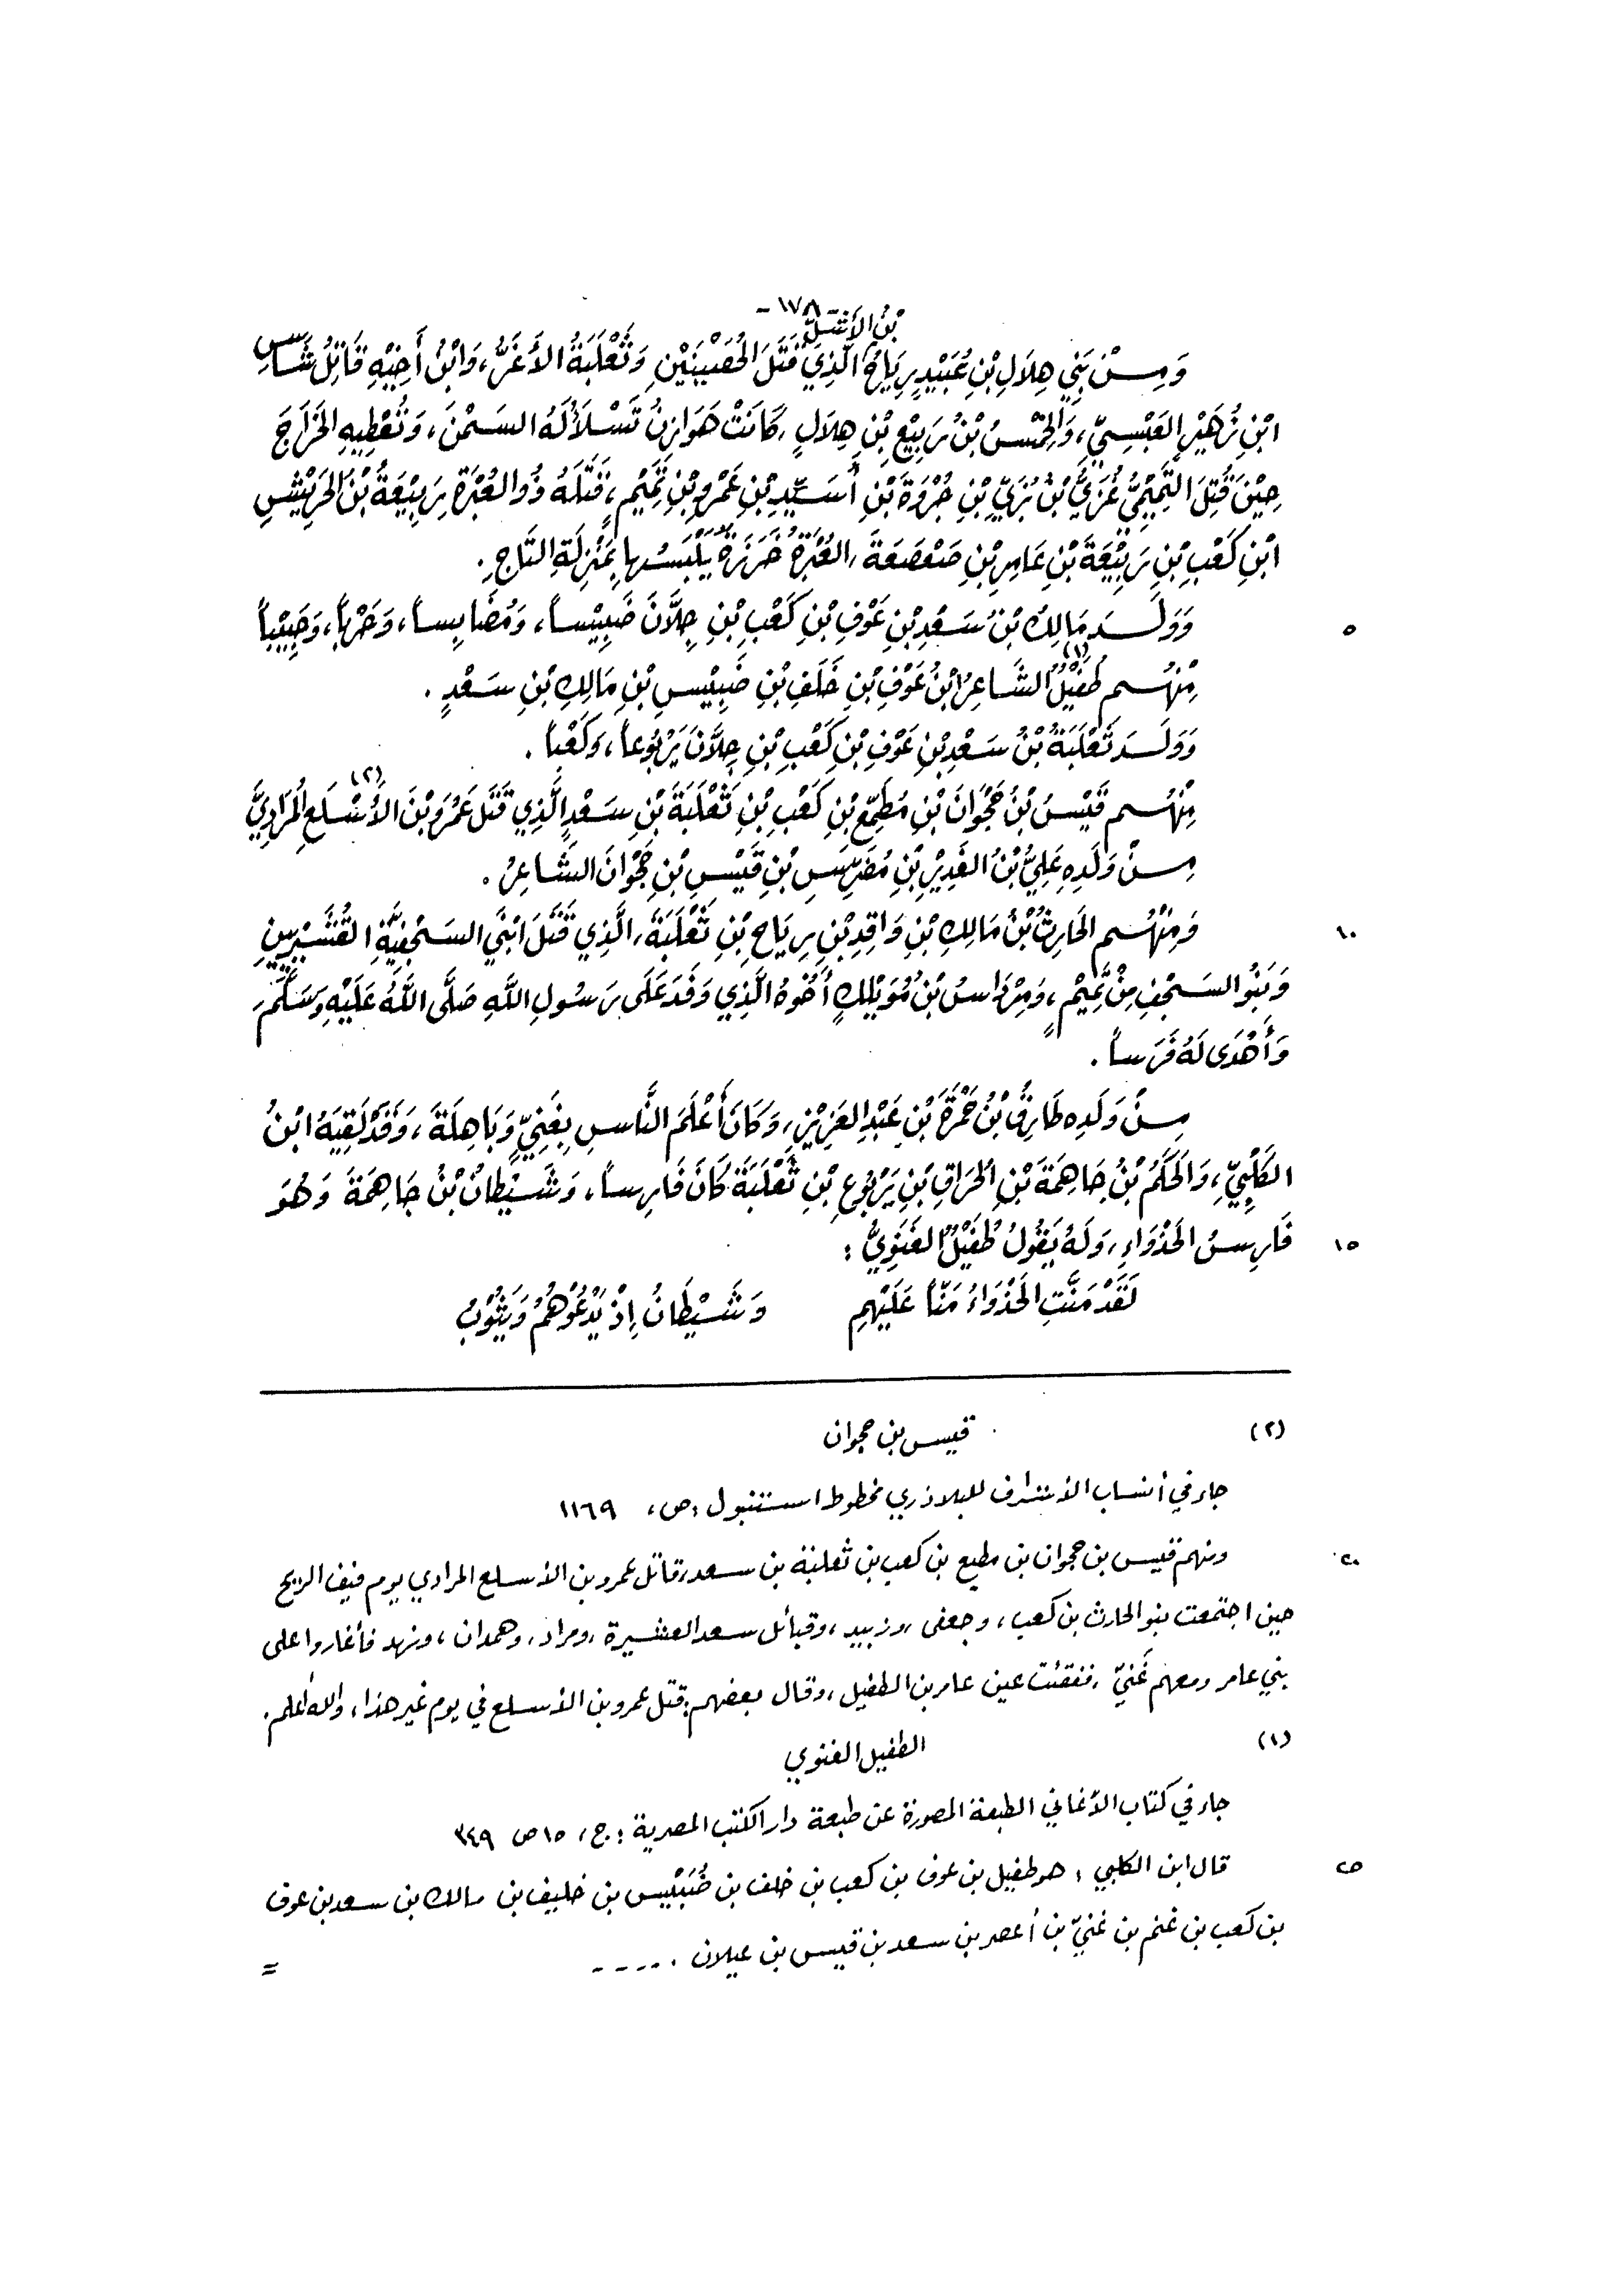 - ١٧٨ -
بْنُ الأَشَلِّ
وَمِنْ بَنِي هِلَالِ بْنِ عُبَيْدٍ رِيَاحُ الَّذِي قَتَلَ الحُصَيْنَيْنِ وَثَعْلَبَةُ الأَغَرُّ، وَابْنُ أَخِيْهِ قَاتِلُ شَأسِ
ابْنِ زُهَيْرٍ العَبْسِيِّ، وَالحِمْسُ بْنُ رَبِيْعِ بْنِ هِلَالٍ، كَانَتْ هَوَازِنُ تَسْلَأُ لَهُ السَمْنَ، وَتُعْطِيهِ الخَرَاجَ
حِيْنَ قُتِلَ التَّمِيْمِيُّ غُزَيُّ بْنُ بُزَيِّ بْنِ جُرْوَةَ بْنِ أُسَيِّدِ بْنِ عَمْرِو بْنِ تَمِيْمٍ، قَتَلَهُ ذُو العُبْرَةِ رَبِيْعَةُ بْنُ الحَرِيْشِ
ابْنِ كَعْبِ بْنِ رَبِيْعَةَ بْنِ عَامِرِ بْنِ صَعْصَعَةَ، العُبْرَةُ خَرَزَةٌ يَلْبَسُها بِمَنْزِلَةِ التَاجِ.
٥ وَوَلَدَ مَالِكُ بْنُ سَعْدِ بْنِ عَوْفِ بْنِ كَعْبِ بْنِ جِلَّانَ ضَبِيْساً، وَمُضَابِساً، وَحَرْباً، وَحَبِيْباً
مِنْهُم طُفَيْلٌ (١) الشَّاعِرُ ابْنُ عَوْفِ بْنِ خَلَفِ بْنِ ضَبِيْسِ بْنِ مَالِكِ بْنِ سَعْدٍ.
وَوَلَدَ ثَعْلَبَةُ بْنُ سَعْدِ بْنِ عَوْفِ بْنِ كَعْبِ بْنِ جِلَّانَ يَرْبُوعاً، وَكَعْباً.
مِنْهُم قَيْسُ بْنُ حَجْوَانَ بْنِ مُطِيعِ بْنِ كَعْبِ بْنِ ثَعْلَبَةَ بْنِ سَعْدٍ الَّذِي قَتَلَ عَمْرَو بْنَ الأَسْلَعِ (٢) المُرَادِيَّ
مِنْ وَلَدِهِ عَلِيُّ بْنُ الغَدِيْرِ بْنِ مُضَرِّسِ بْنِ قَيْسِ بْنِ حَجْوَانَ الشَّاعِرُ.
١٠ وَمِنْهُم الحَارِثُ بْنُ مَالِكِ بْنِ وَاقِدِ بْنِ رِيَاحِ بْنِ ثَعْلَبَةَ، الَّذِي قَتَلَ ابْنَي السَجْفِيَّةِ القُشَيْرِيينِ
وَبَنُو السَجْفِ مِنْ تَمِيْمٍ، وَمِرْدَاسُ بْنُ مُوَيْلِكٍ أَخُوهُ الَّذِي وَفَدَ عَلَى رَسُولِ اللَّهِ صَلَّى اللَّهُ عَلَيْهِ وَسَلَّمَ،
وَأَهْدَى لَهُ فَرَساً.
مِنْ وَلَدِهِ طَارِقُ بْنُ حَمْزَةَ بْنِ عَبْدِ العَزِيْزِ، وَكَانَ أَعْلَمَ النَّاسِ بِغَنِيٍّ وَبَاهِلَةَ، وَقَدْ لَقِيَهُ ابْنُ
الكَلْبِيِّ، وَالحَكَمُ بْنُ جَاهِمَةَ بْنِ الحُرَاقِ بْنِ يَرْبُوعِ بْنِ ثَعْلَبَةَ كَانَ فَارِساً، وَشَيْطَانُ بْنُ جَاهِمَةَ وَهُوَ
١٥ فَارِسُ الخَذْوَاءِ، وَلَهُ يَقُولُ طُفَيْلٌ الغَنَوِيُّ:
لَقَدْ مَنَّتِ الخَذْوَاءُ مَنّاً عَلَيْهِمِ وَشَيْطَانُ إِذْ يَدْعُوْهُمُ وَيَثُوْبُ
(٢) قيس بن حجوان
جاء في أنساب الأشراف للبلاذري مخطوط استنبول: ص، ١١٦٩
٢٠ ومنهم قيس بن حجوان بن مطيع بن كعب بن ثعلبة بن سعد، قاتل عمرو بن الأسلع المرادي يوم فيف الريح
حين اجتمعت بنو الحارث بن كعب، وجعفى، وزبيد، وقبائل سعد العشيرة، ومراد، وهمدان، ونهد فأغاروا على
بني عامر ومعهم غَنيّ، ففقئت عين عامر بن الطفيل، وقال بعضهم: قتل عمرو بن الأسلع في يوم غير هذا، والله أعلم.
(١) الطفيل الغنوي
جاء في كتاب الأغاني الطبعة المصورة عن طبعة دار الكتب المصرية: ج، ١٥ ص ٣٤٩
٢٥ قال ابن الكلبي: هو طفيل بن عوف بن كعب بن خلف بن ضُبَيْس بن خليف بن مالك بن سعد بن عوف
بن كعب بن غنم بن غنيّ بن أعصر بن سعد بن قيس بن عيلان . ـ ـ ـ ـ
=